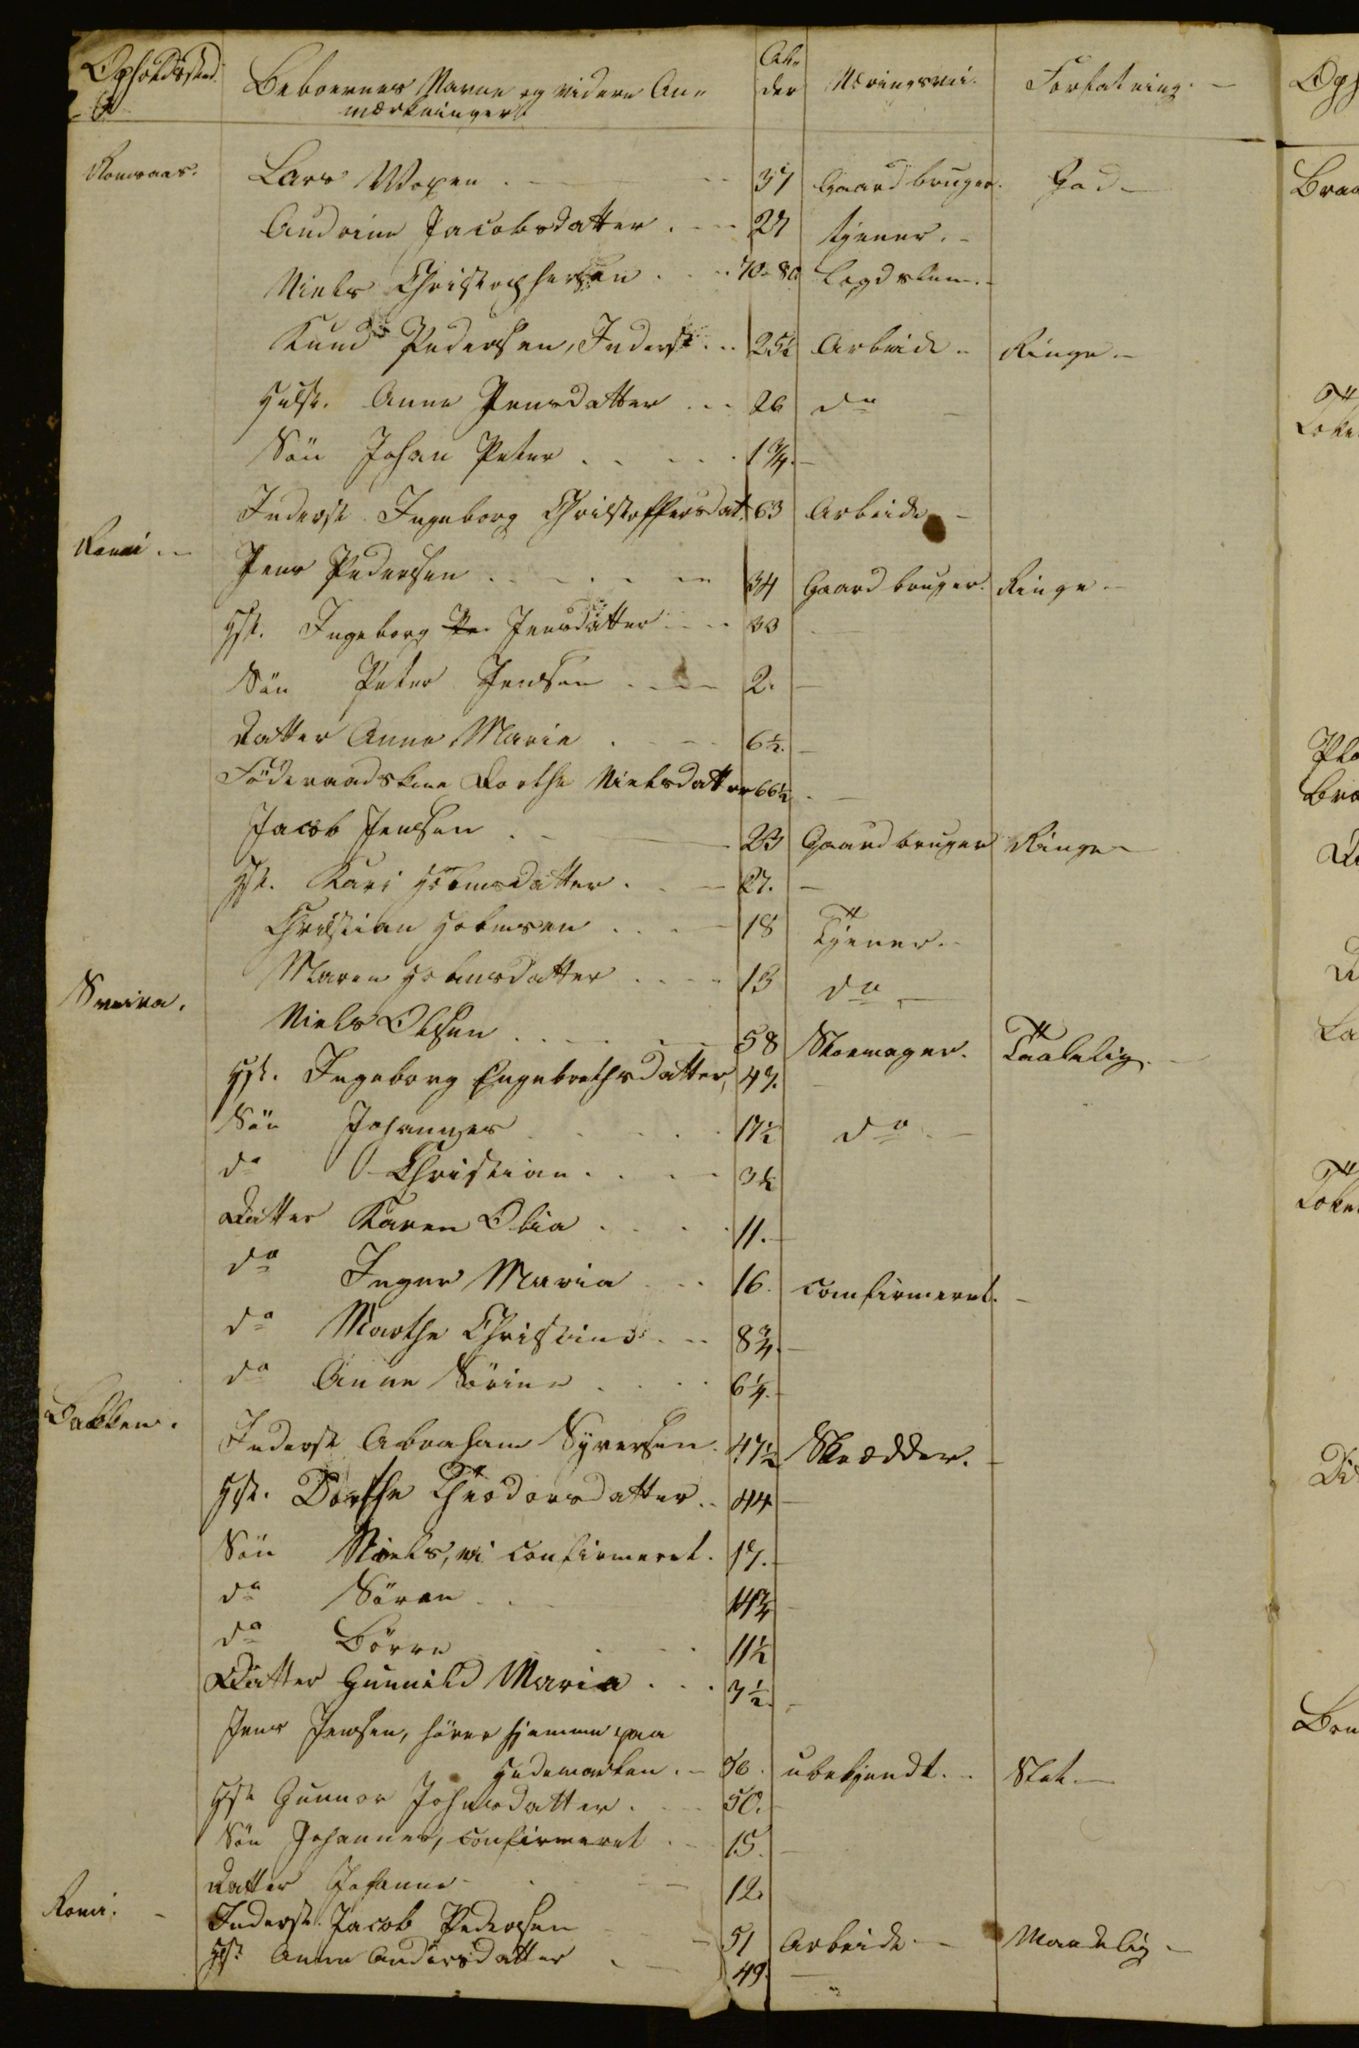 Opholdssted. Beboernes Navne og videre An- Al- Næringsvei. Forfatning. -
mærkninger der
Romsaas. Lars Wopen . - 37 Gaardbruger. God -
Audvine Jacobsdatter . - - 27 tjener. -
Niels Christophersen . . . 70 - 80 Legdslem. -
Knud Pedersen, Inderst . . 25½ Arbeide - Ringe -
Hust. Anne Jensdatter . . . 26 do -
Sön Johan Peter . . . . . 1¾. -
Inderst Ingeborg Christoffersdat. 63 Arbeide -
Romi - Jens Pedersen . . . . . 34 Gaardbruger. Ringe. -
Hst. Ingeborg Jensdatter . . . 33 -
Sön Peter Jensen . . . 2. -
Datter Anne Marie . . . 6½. -
Föderaadskone Dorthe Nielsdatter 66½ . -
Jacob Jensen . - 23 Gaardbruger Ringe -
Hst. Kari Holmsdatter . . - 27. -
Christian Holmsen . . . 18 Tjener. -
Maren Holmsdatter . . . . 13 do -
Sneiva. Niels Olsen . . . . . 58 Skoemager. Taalelig. -
Hst. Ingeborg Engebrethsdatter, 47. -
Sön Johannes . . . . . 17½ do . -
do Christian . . . - 3½
Datter Karen Olia . . . . 11. -
do Inger Maria . . . 16. confirmeret. -
do Marthe Christine . . . 8¾. -
do Anne Sörine . . . . 6¼. -
Bakken. Inderst Abraham Syversen. 47½ Skrædder. -
Hst. Dorthe Theodorsdatter . . 44 -
Sön Niels, ei confirmeret. 17. -
do Sören . . 14¾ -
do Börre . . . . 11½
Datter Gunnild Maria . . . 3½. -
Jens Jensen, hörer hjemme paa
Hedemarken. - 56. ubekjendt. - Slet. -
Hst Gunnor Johnsdatter. . . 50. -
Sön Johannes, confirmeret . . 15. -
Datter Johanne - . . . - 12.
Romi. - Inderst. Jacob Pedersen - 51 Arbeide - Maadelig -
Hst. Anne Andersdatter . - 49. -